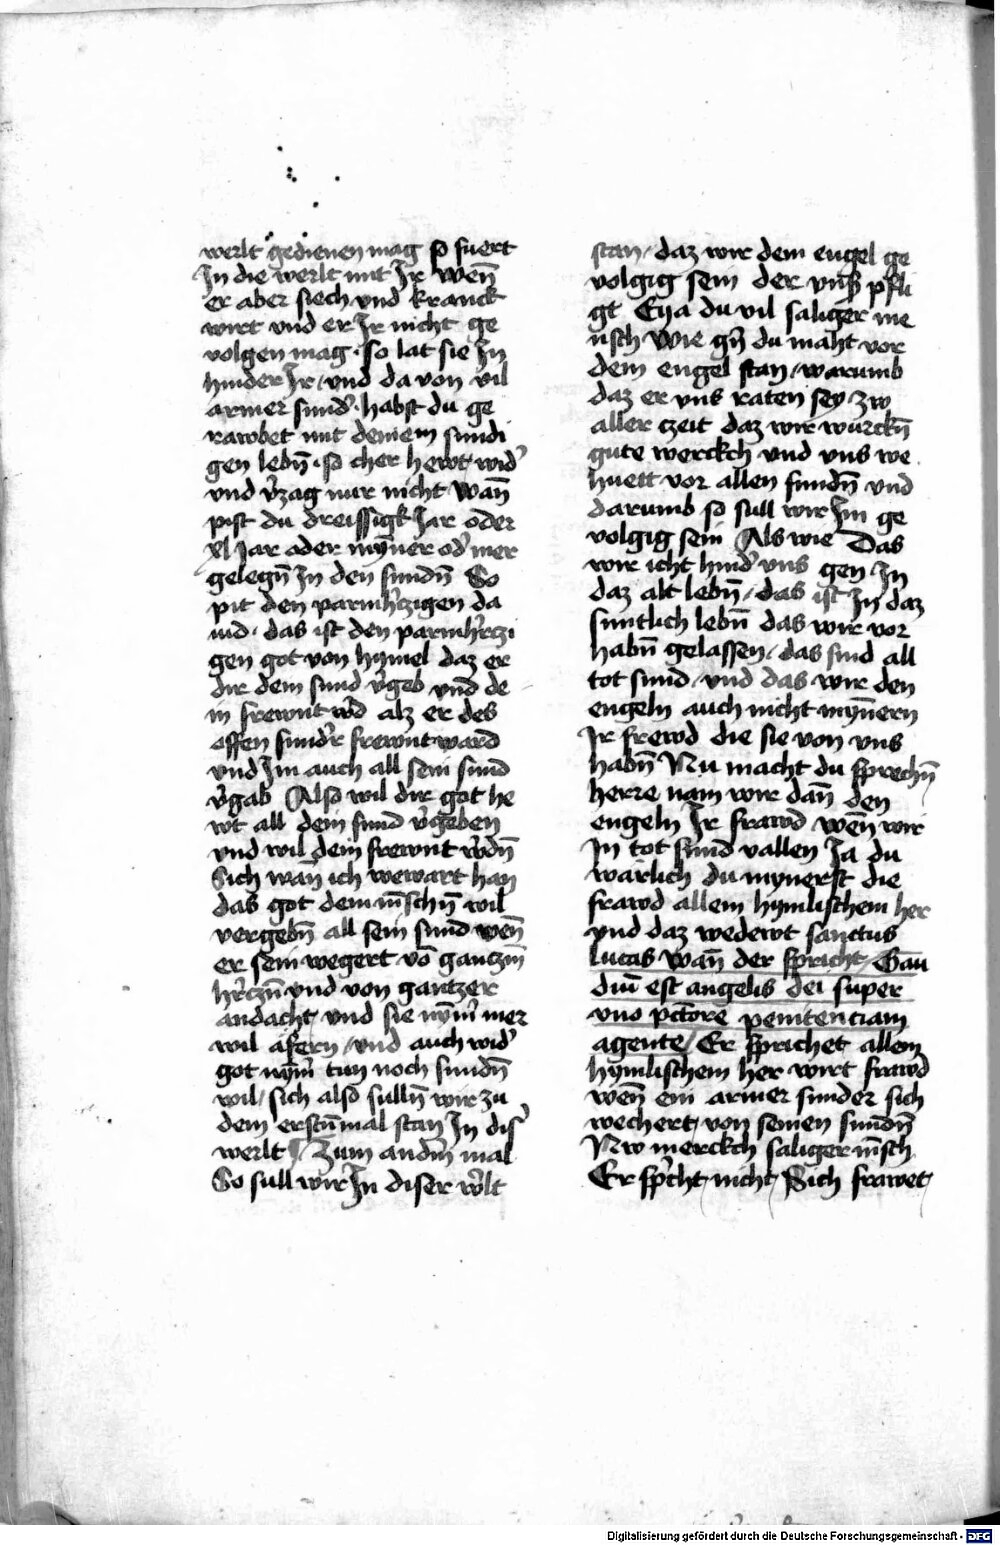 werlt gedienen mag so fuert
In die werlt mit Ir wen̄
er aber siech vnd kranck
wirt vnd er Ir nicht ge
volgen mag · so lat sie In
hinder Ir / vnd da von vil
armer sund᷑ · habst du ge
rawbet mit deinem sundi
gen lebn̄ · so cher hewt wid᷑
vnd v᷑zag nur nicht Wan̄
pist du dreissigk Iar oder
xl Iar oder myn̄er od᷑ mer
gelegn̄ In den sundn̄ So
pit den parmh᷑tzigen da
uid · das ist den parmh᷑czi
gen got von hymel daz er
dir dein sund v᷑geb vnd de
in frewnt w᷑d alz er des
offen sund᷑r frewnt ward
vnd Im auch all sein sund
v᷑gab Also wil dir got he
wt all dein sund v᷑geben
vnd wil dein frewnt w᷑dn̄
Sich wan̄ ich wewart han
das got dem m̄schn̄ wil
vergebn̄ all sein sund wen̄
er sein wegert vō gantzm̄
h᷑czn̄ vnd von gantzer
andacht / vnd sie nym᷑ mer
wil äfern / vnd auch wid᷑
got nym᷑ tun noch sundn̄
wil / sich also sulln̄ wir zu
dem erstn̄ mal stan In dis᷑
werlt / Zum and᷑n mal
So sull wir In diser w᷑lt
stan / daz wir dem engel ge
volgig sein der vnß pfli
gt Eya du vil saliger me
nsch Wie g᷑n du maht vor
dem engel stan / warumb
daz er vns raten sey zw
aller czeit daz wir wurckn̄
gute werckch vnd vns we
huett vor allen sundn̄ vnd
darumb so sull wir Im ge
volgig sein Als wie Das
wir icht hind᷑ vns gen In
daz alt lebn̄ / das ist In daz
suntlich lebn̄ das wir vor
habn̄ gelassen / das sind all
tot sund / vnd das wir den
engeln auch nicht myn̄ern
Ir frewd die sie von vns
habn̄ Nu macht du sprechn̄
herre nam wir dan̄ den
engeln Ir frawd wen̄ wir
In tot sund vallen Ia du
wärlich du mynerst die
frawd allem hymlischem her
vnd daz wedewt sanctus
lucas wan̄ der spricht / Gau
diū est angelis dei super
vno pctōre penitenciam
agente / Er sprichet allem
hymlischem her wirt frawd
wen̄ ein armer sunder sich
wechert / von seinen sundn̄
Nw merckch saliger m̄sch
Er sp᷑cht / nicht / Sich frawet